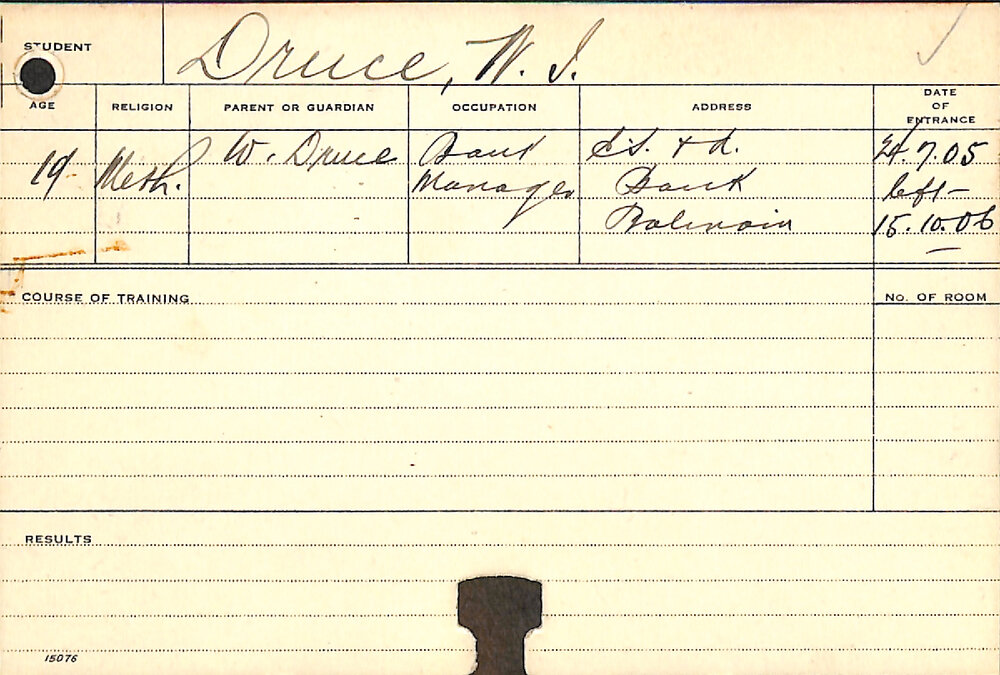 STUDENT Druce, W. J.
AGE RELIGION PARENT OR GUARDIAN OCCUPATION ADDRESS DATE OF ENTRANCE
19 Meth. W. Druce Bank Manager E.S. & A. Bank 24.7.05
left-
15.10.06
COURSE OF TRAINING No. OF ROOM
RESULTS
15076